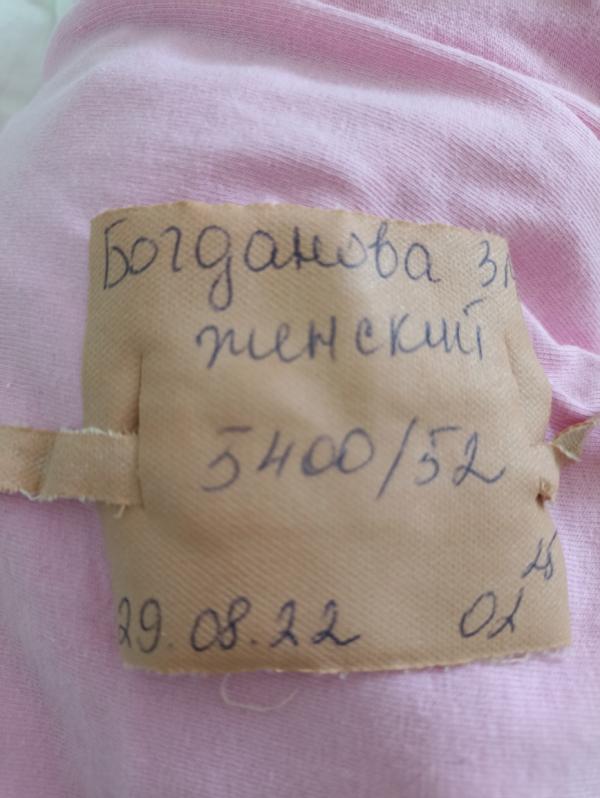 Богданова
женский
5400/52
25
29.08.22 02